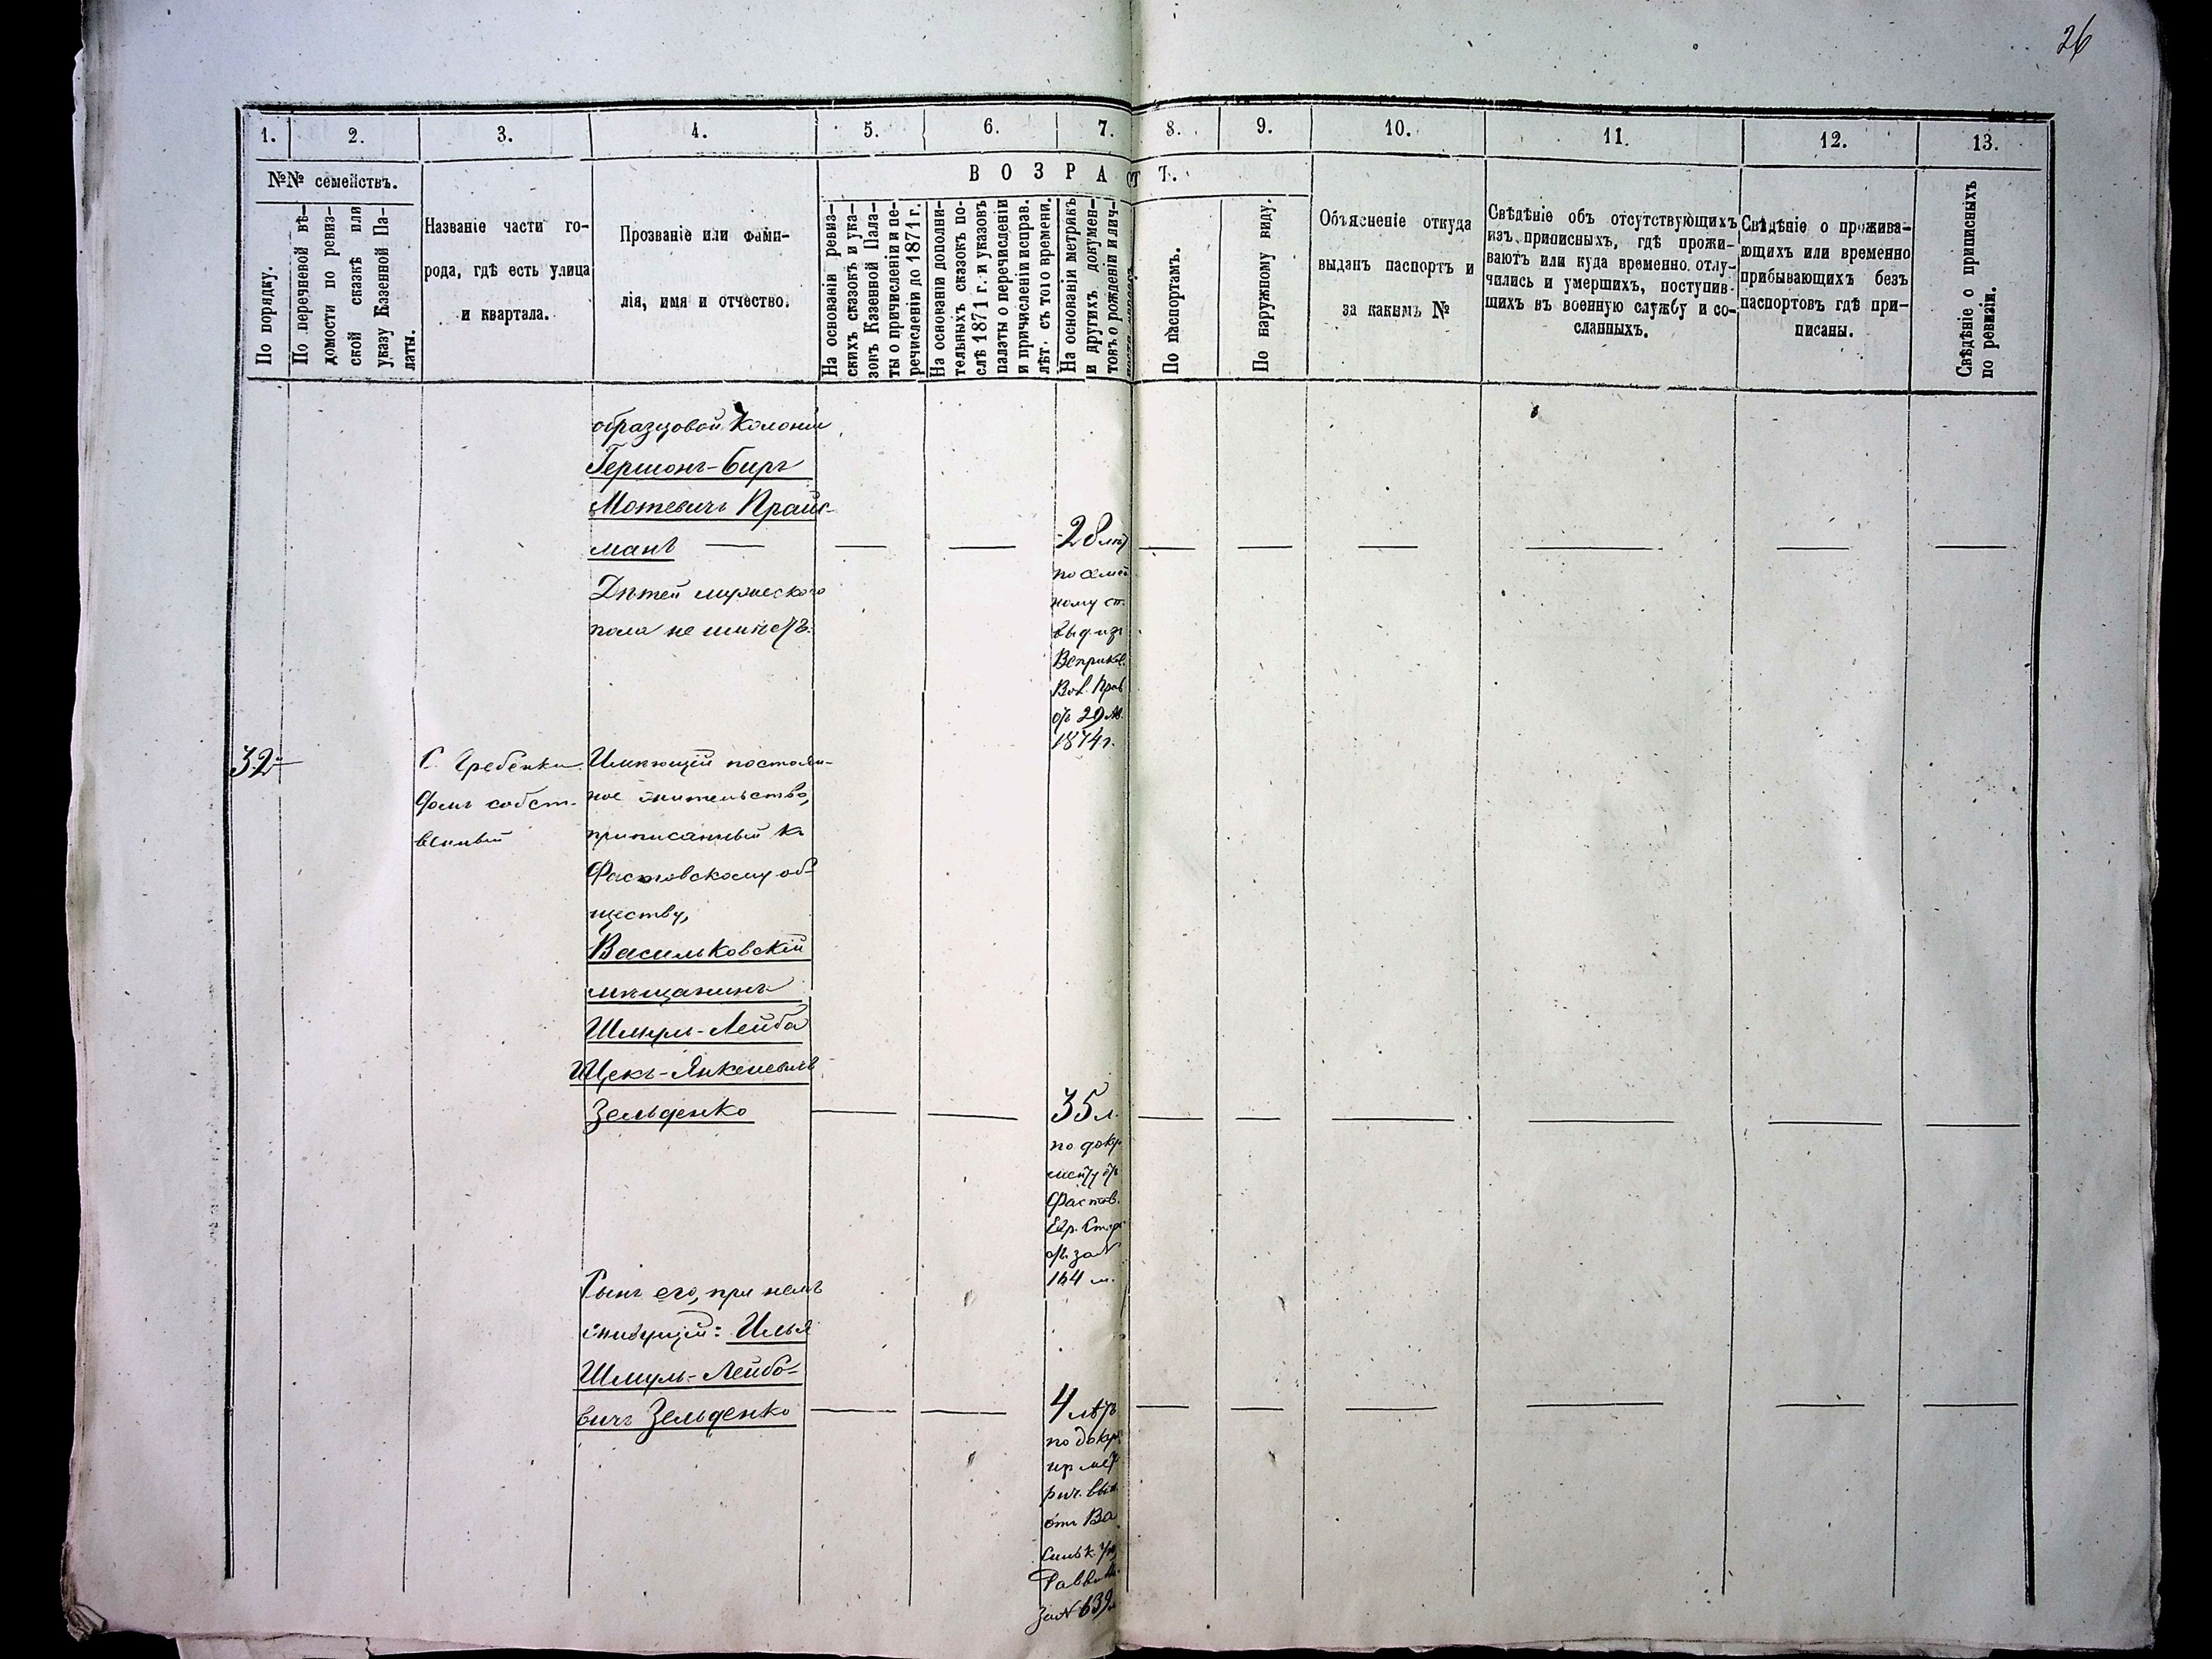 26
1. 2. 3. 4. 5. 6. 7. 8. 9. 10. 11. 12. 13.
№№ семействъ.
По порядку.
По перечневой вѣ-
домости по ревиз-
ской сказкѣ или
указу Казенной Па-
латы.
Названіе части го-
рода, гдѣ есть улица
и квартала.
Прозваніе или фами-
лія, имя и отчество.
ВОЗРАСТЪ.
На основаніи ревиз-
скихъ сказокъ и ука-
зовъ Казенной Пала-
ты о причисленіи и пе-
речисленіи до 1871 г.
На основаніи дополни-
тельныхъ сказокъ по-
слѣ 1871 г. и указовъ
палаты о перечисленіи
и причисленіи исправ.
лѣт. съ того времени.
На основаніи метрикъ
и другихъ докумен-
товъ о рожденіи и лич-
По паспортамъ.
По наружному виду.
Объясненіе откуда
выданъ паспортъ и
за какимъ №
Свѣдѣніе объ отсутствующихъ
изъ приписныхъ, гдѣ прожи-
ваютъ или куда временно отлу-
чились и умершихъ, поступив-
шихъ въ военную службу и со-
сланныхъ.
Свѣдѣніе о прожива-
ющихъ или временно
прибывающихъ безъ
паспортовъ гдѣ при-
писаны.
Свѣдѣніе о приписныхъ
по ревизіи.
образцовой Колоніи
Гершонъ-Беръ
Мотевичъ Прайс-
манъ
Дѣтей мужескаго
пола не имѣетъ.
28 лѣтъ
ному
выд. изъ
Веприков.
Вол. Прав
отъ 29 Ав.
1874 г.
32
С. Гребенки
домъ собст-
венный
Имѣющій постоян-
ное жительство,
приписанный къ
Фастовскому об-
ществу,
Васильковскій
мѣщанинъ
Шмуль-Лейба
Зельденко
35 л.
по доку
менту отъ
Фастов.
Евр. Стар
за №
164 м.
Сынъ его, при немъ
живущій: Илья
Шмуль-Лейбо-
вичъ Зельденко
4 лѣтъ
по доку
мет
рич. вып
отъ Ва
сильк.
Равви
за № 639